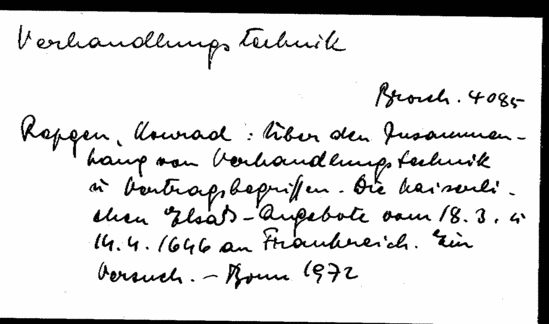 Verhandlungstechnik
Brosch. 4085
Repgen, Konrad: Über den Zusammen-
hang von Verhandlungstechnik
u Vertragsbegriffen. Die kaiserli-
chen Elsaß-Angebote vom 18.3. u
14.4. 1646 an Frankreich. Ein
Versuch. - Bonn 1972